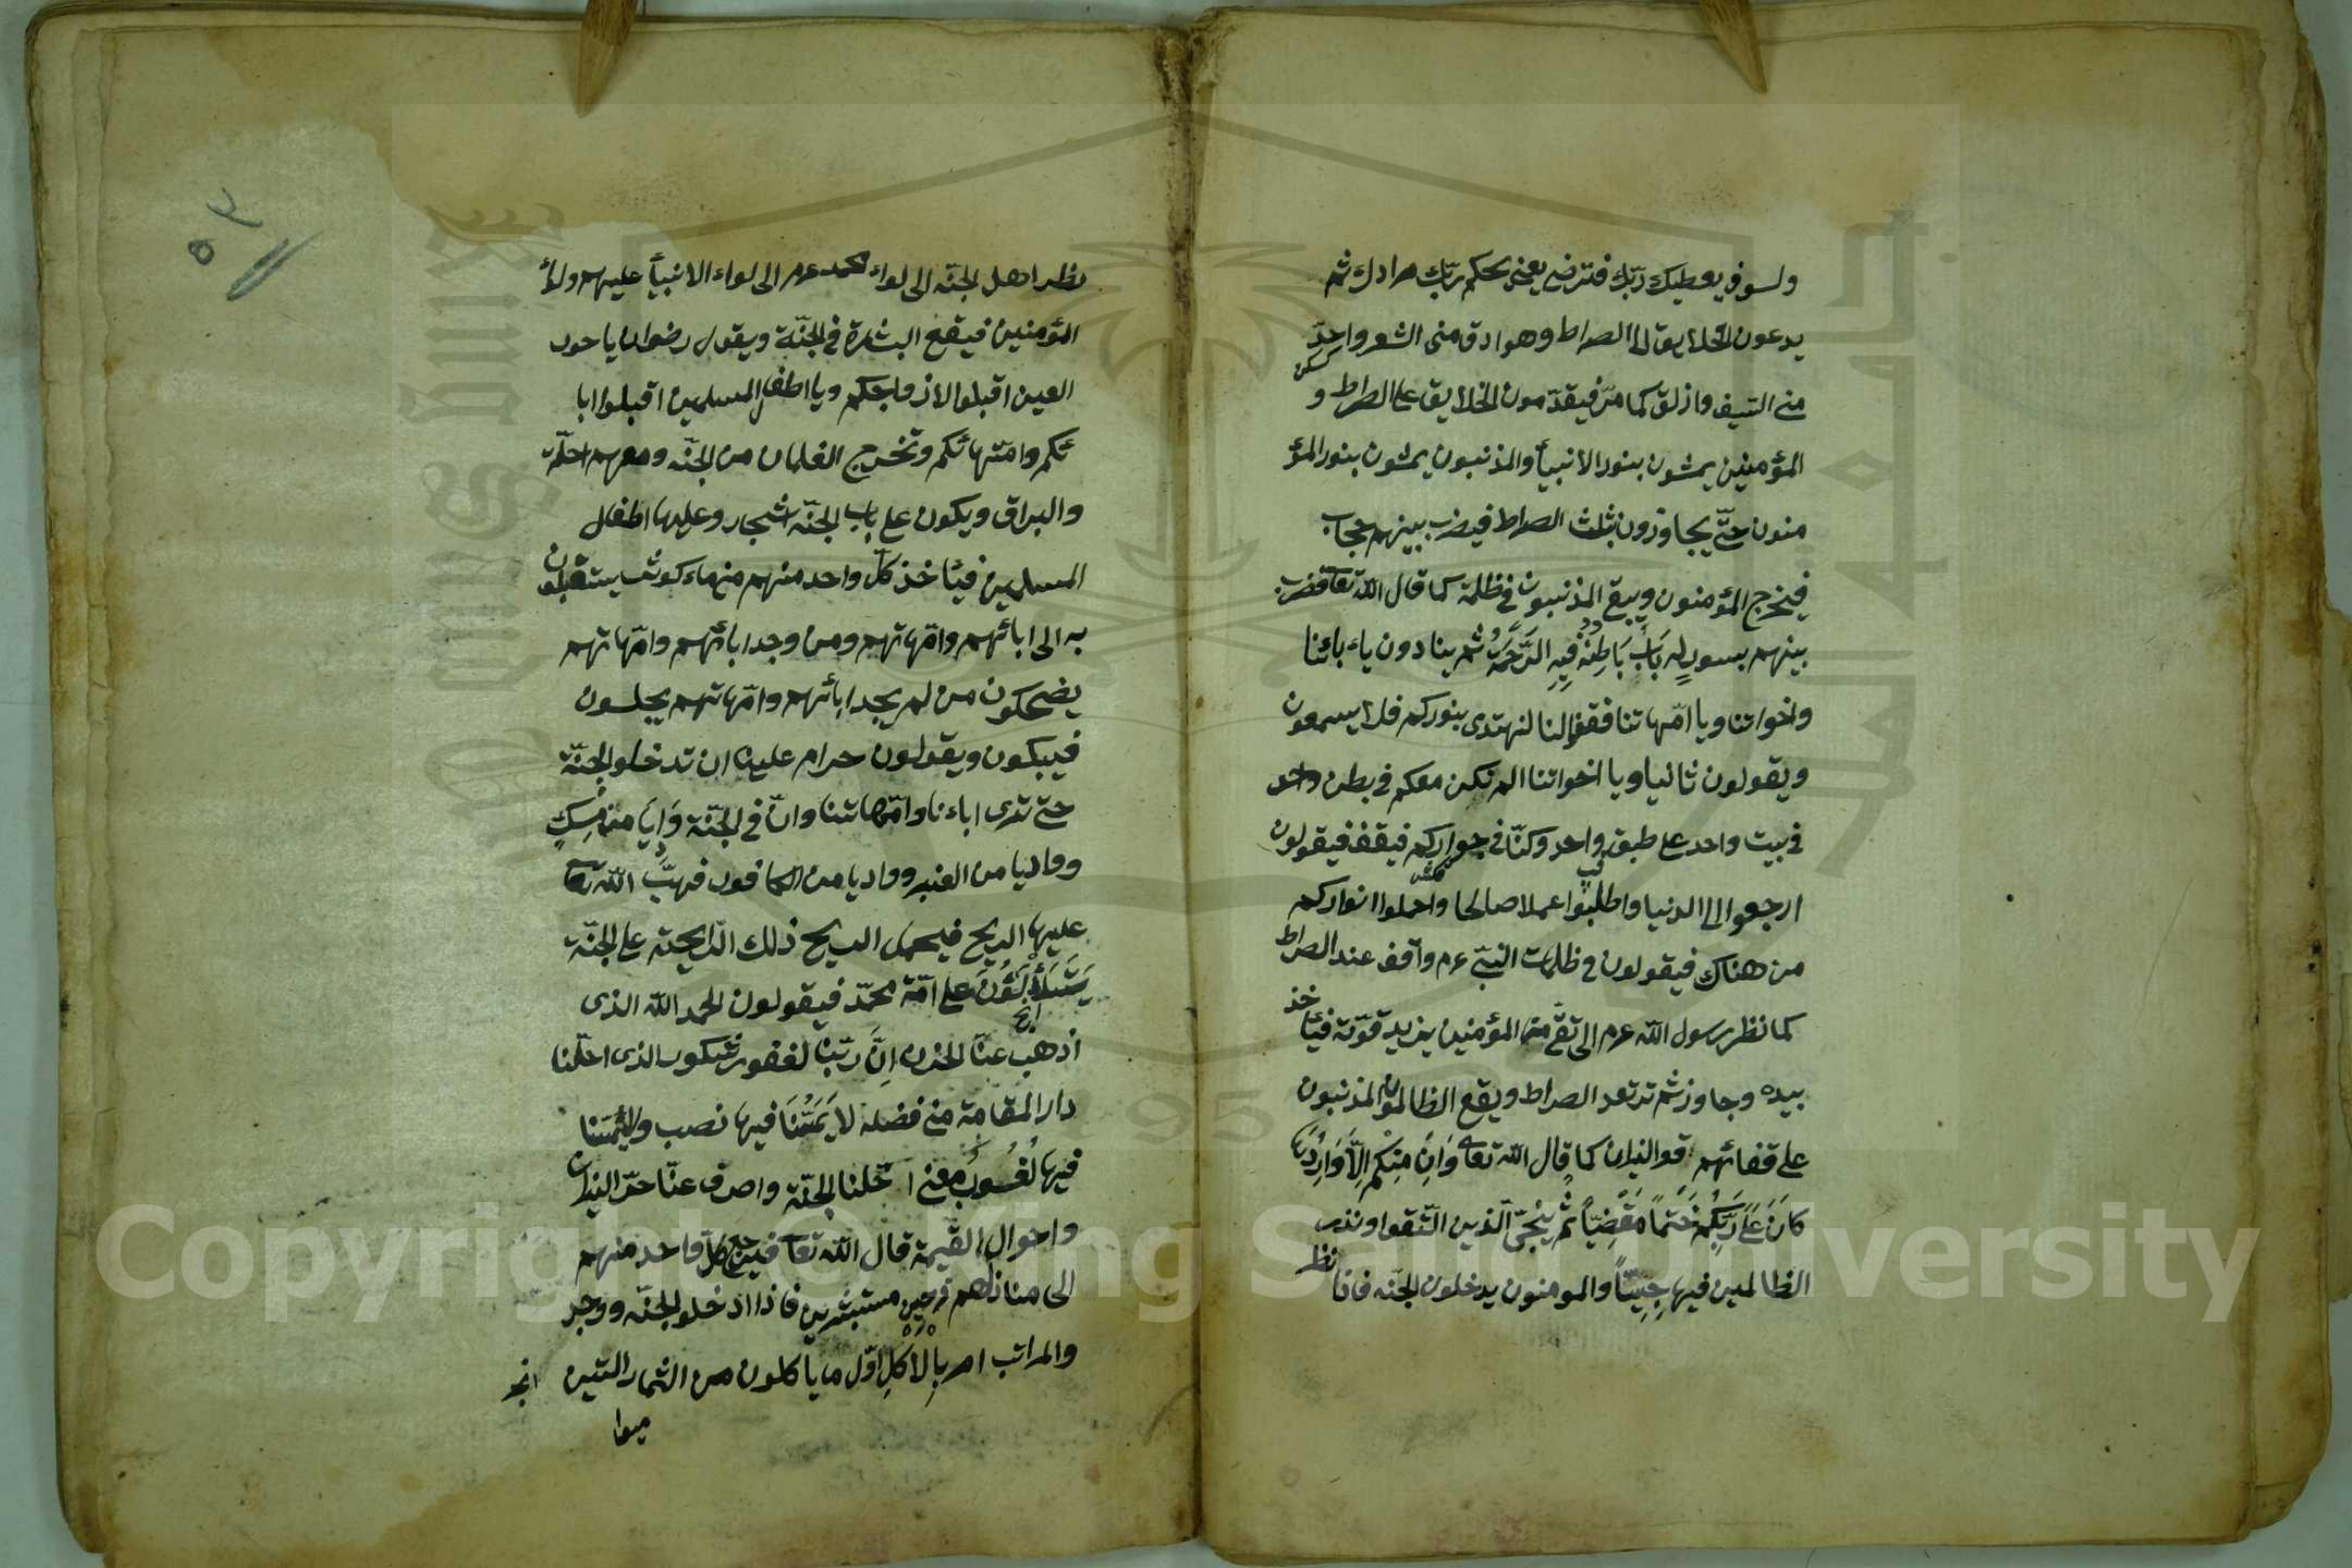 ولسوف يعطيك ربك فترضى يعنى يحكم ربك مرادك ثم
يدعون الخلايق الى الصراط وهو ادق من الشعر واحدّ
سكن
من السيف وازلق كما مرّ فيقدّمون الخلايق على الصراط و
المؤمنين يمشون بنور الانبيأ والمذنبون يمشون بنور المؤ
منون حتّى يجاوزون بثلث الصراط فيضرب بينهم حجاب
فيخرج المؤمنون ويبقى المذنبون فى ظلمة كما قال الله تعا فضرب
بينهم بسورٍ له بَابٌ بَاطِنُهُ فِيهِ الرَّحْمَةُ ثم ينادون ياءبائنا
واخواتنا ويا امّهاتنا فقفوا لنا لنهتدى بنوركم فلا يسمعون
ويقولون ثانيا ويا اخواتنا الم نكن معكم فى بطن واحد
فى بيت واحد على طبق واحد وكنّا فى جواركم فيقف فيقولون
ارجعوا الى الدنيا واطلبوا عملا صالحا واحملوا انواركم
من هناك فيقولون فى ظلمات النبىّ عرم واقف عند الصراط
كما نظر رسول الله عرم الى تقىّ من المؤمنين يزيد قوّته فيئاخذ
بيده وجاوز ثم ترتعد الصراط ويقع الظالمون المذنبون
على قفائهم قو النيران كما قال الله تعا وَاِنْ مِنْكُمْ اِلَّا وَارِدُهَا
كَانَ عَلَى رَبِّكَ حَتْماً مَقْضِيّاً ثم ينجّى الّذين اتّقوا ونذر
الظالمين فيها جِثِيّاً والمومنون يدخلون الجنّه فاذا نظر
نظر اهل الجنّه الى لواء محمد عرم الى لواء الانبيأ عليهم ولؤ
المؤمنين فيقع البشارة فى الجنّة ويقول رضوان يا حور
العين اقبلوا لازواجكم ويا اطفال المسلمين اقبلوا ابا
ئكم وامّهائكم وتخرج الغلمان من الجنّه ومعهم احلّة
والبراق ويكون على باب الجنّه اشجار وعليها اطفال
المسلمين فيئاخذ كلّ واحد منهم من ماء كوثر يستقبلون
به الى ابائهم وامّهاتهم ومن وجد ابائهم وامّهاتهم
يضحكون من لم يجد ابائهم وامّهاتهم يجلسون
فيبكون ويقولون حرام علينا ان تدخلوا الجنّة
حتى ترى اباءنا وامّهاتنا وانّ فى الجنّة وَادِياً من مِسكٍ
وواديا من العنبر وواديا من الكافور فهبّ الله تعا
عليها الريح فيحمل الريح ذلك الرايحة على الجنّة
على امّة محمّد فيقولون الحمد الله الذى
اذهب عنّا الحزن اِنَّ ربّنا لغفور شكور الذى احلّنا
دار المقامة من فضله لا يَمَسُّنَا فيها نصب ولا يَمَسّنا
فيها لُغُوبٌ معنى ادخلنا الجنّة واصرف عنّا حرّ النيران
واحوال القيمة قال الله تعا فيرجع كلّ واحد منهم
الى منازلهم فرحين مستبشرين فاذا ادخلو الجنّه ووجد
والمراتب امر بِالْاَكْلِ اوّل ما ياكلون من الثمار التين
انجر
ميوا
٥٣
Copyright © King Saud University
1957